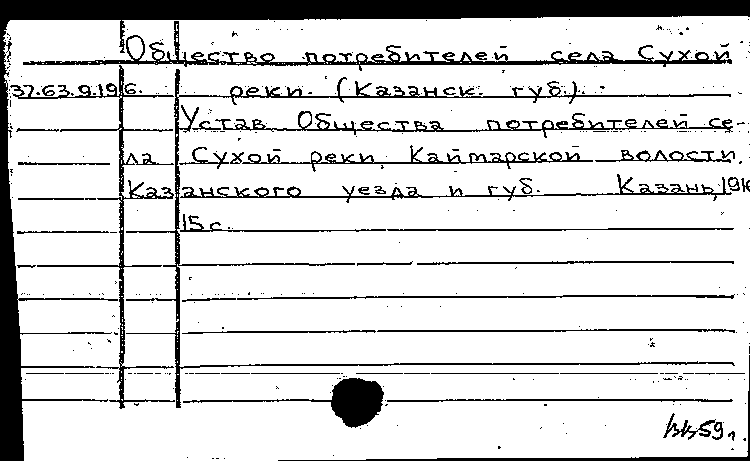 Общество потребителей села Сухой
37.63.9.196. реки. (Казанск. губ.).
Устав Общества потребителей се-
ла Сухой реки, Каймарской волости,
Казанского уезда и губ. Казань, 191
15 с.